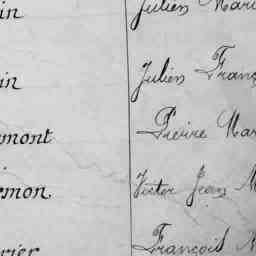 in Julien Mari
in Julien Franç
mont Pierre Mar
mon Victor Jean M
rier François M